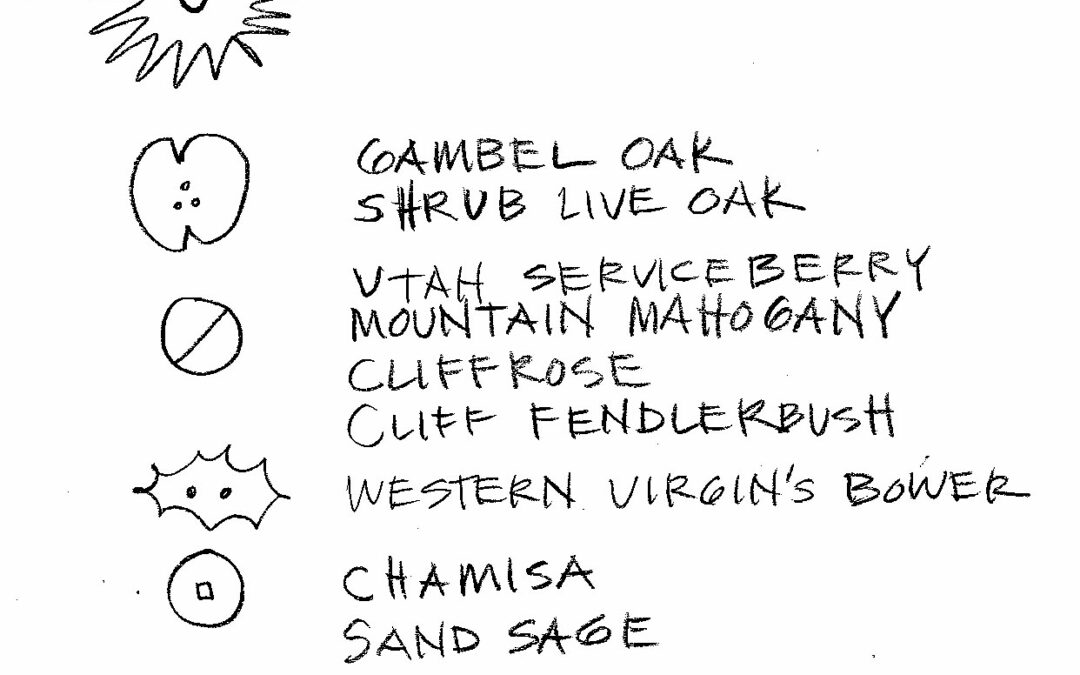 GAMBEL OAK
SHRUB LIVE OAK
UTAH SERVICEBERRY
MOUNTAIN MAHOGANY
CLIFFROSE
CLIFF FENDLERBUSH
WESTERN VIRGIN'S BOWER
CHAMISA
SAND SAGE